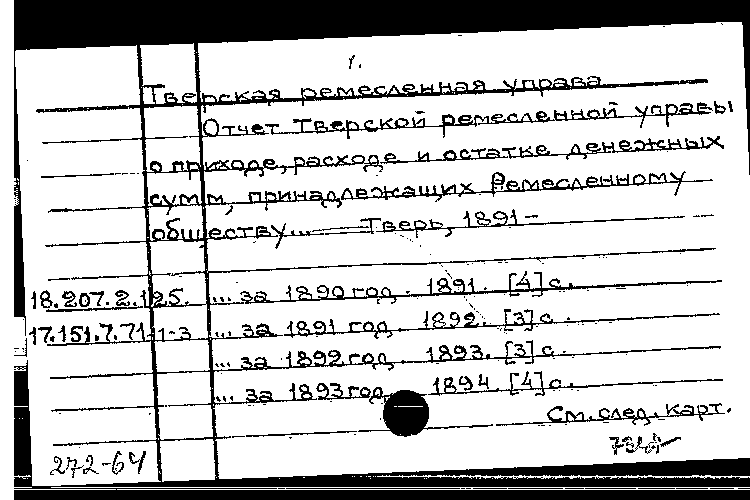 1.
Тверская ремесленная управа
Отчет Тверской ремесленной управы
о приходе, расходе и остатке денежных
сумм, принадлежащих Ремесленному
обществу... Тверь, 1891-
18.207.2.125. ... за 1890 год. 1891. [4] с.
17.151.7.71-1-3 ... за 1891 год. 1892. [3] с.
... за 1892 год. 1893. [3] с.
... за 1893 год 1894. [4] с.
См. след. карт.
272-64